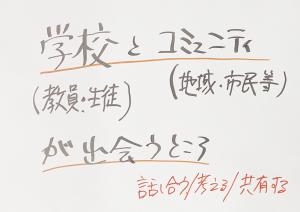 学校とコミュニティ
(教員・生徒) (地域・市民等)
が出会うところ
話し合う/考える/共有する